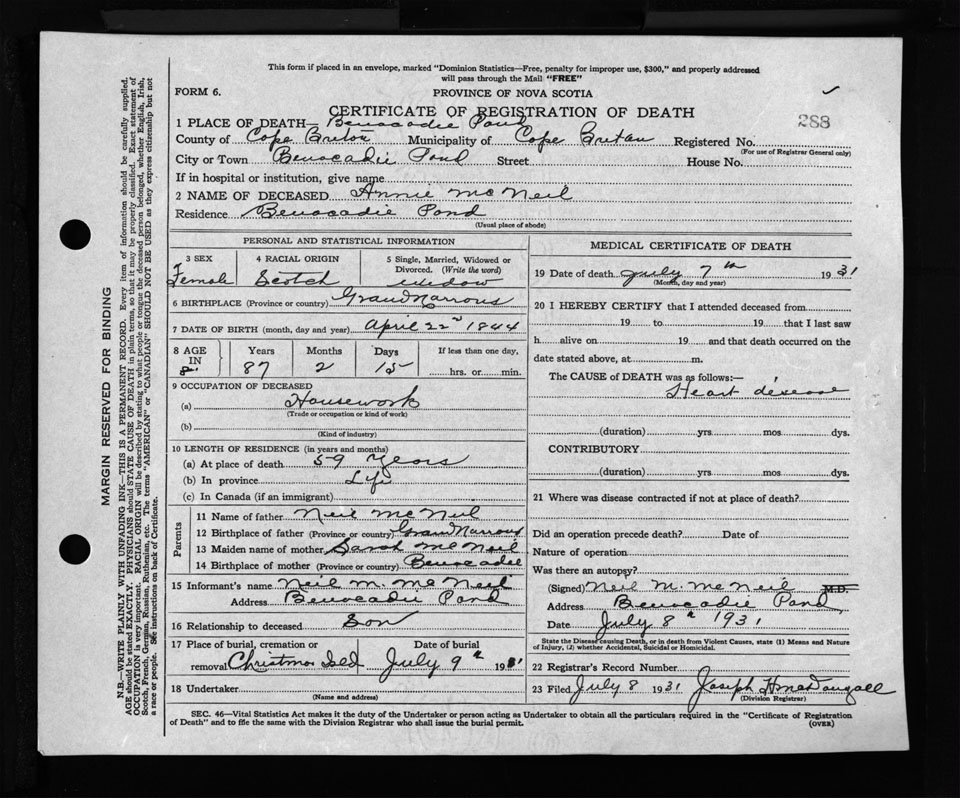 This form if placed in an envelope, marked "Dominion Statistics—Free, penalty for improper use, $300," and properly addressed
will pass through the Mail "FREE"
FORM 6.
PROVINCE OF NOVA SCOTIA
288
CERTIFICATE OF REGISTRATION OF DEATH
1 PLACE OF DEATH— Benacadie Pond
County of Cape Breton Municipality of Cape Breton Registered No.
(For use of Registrar General only)
City or Town Benacadie Pond Street House No.
If in hospital or institution, give name
2 NAME OF DECEASED Annie McNeil
Residence Benacadie Pond
(Usual place of abode)
PERSONAL AND STATISTICAL INFORMATION
3 SEX 4 RACIAL ORIGIN 5 Single, Married, Widowed or
Divorced. (Write the word)
Female Scotch widow
6 BIRTHPLACE (Province or country) Grand Narrows
7 DATE OF BIRTH (month, day and year) April 22nd 1844
8 AGE Years Months Days If less than one day,
IN 87 2 15 hrs. or min.
9 OCCUPATION OF DECEASED
(a) Housework
(Trade or occupation or kind of work)
(b)
(Kind of industry)
10 LENGTH OF RESIDENCE (in years and months)
(a) At place of death 59 years
(b) In province Life
(c) In Canada (if an immigrant)
Parents
11 Name of father Neil McNeil
12 Birthplace of father (Province or country) Grand Narrows
13 Maiden name of mother Sarah McNeil
14 Birthplace of mother (Province or country) Benacadie
15 Informant's name Neil M. McNeil
Address Benacadie Pond
16 Relationship to deceased Son
17 Place of burial, cremation or Date of burial
removal Christmas Isld July 9th 1931
18 Undertaker
(Name and address)
MEDICAL CERTIFICATE OF DEATH
19 Date of death July 7th 1931
(Month, day and year)
20 I HEREBY CERTIFY that I attended deceased from
19 to 19 that I last saw
h alive on 19 and that death occurred on the
date stated above, at m.
The CAUSE of DEATH was as follows:—
Heart disease
(duration) yrs mos dys.
CONTRIBUTORY
(duration) yrs mos dys.
21 Where was disease contracted if not at place of death?
Did an operation precede death? Date of
Nature of operation
Was there an autopsy?
(Signed) Neil M. McNeil M.D.
Address Benacadie Pond
Date July 8th 1931
State the Disease causing Death, or in death from Violent Causes, state (1) Means and Nature
of Injury, (2) whether Accidental, Suicidal or Homicidal.
22 Registrar's Record Number
23 Filed July 8 1931 Joseph H MacDougall
(Division Registrar)
SEC. 46—Vital Statistics Act makes it the duty of the Undertaker or person acting as Undertaker to obtain all the particulars required in the "Certificate of Registration
of Death" and to file the same with the Division Registrar who shall issue the burial permit.
(OVER)
MARGIN RESERVED FOR BINDING
N.B.—WRITE PLAINLY WITH UNFADING INK—THIS IS A PERMANENT RECORD. Every item of information should be carefully supplied.
AGE should be stated EXACTLY. PHYSICIANS should STATE CAUSE OF DEATH in plain terms, so that it may be properly classified. Exact statement of
OCCUPATION is very important. RACIAL ORIGIN will be described by stating to what people or tongue the deceased person belonged, whether English, Irish,
Scotch, French, German, Russian, Ruthenian, etc. The terms "AMERICAN" or "CANADIAN" SHOULD NOT BE USED as they express citizenship but not
a race or people. See instructions on back of Certificate.